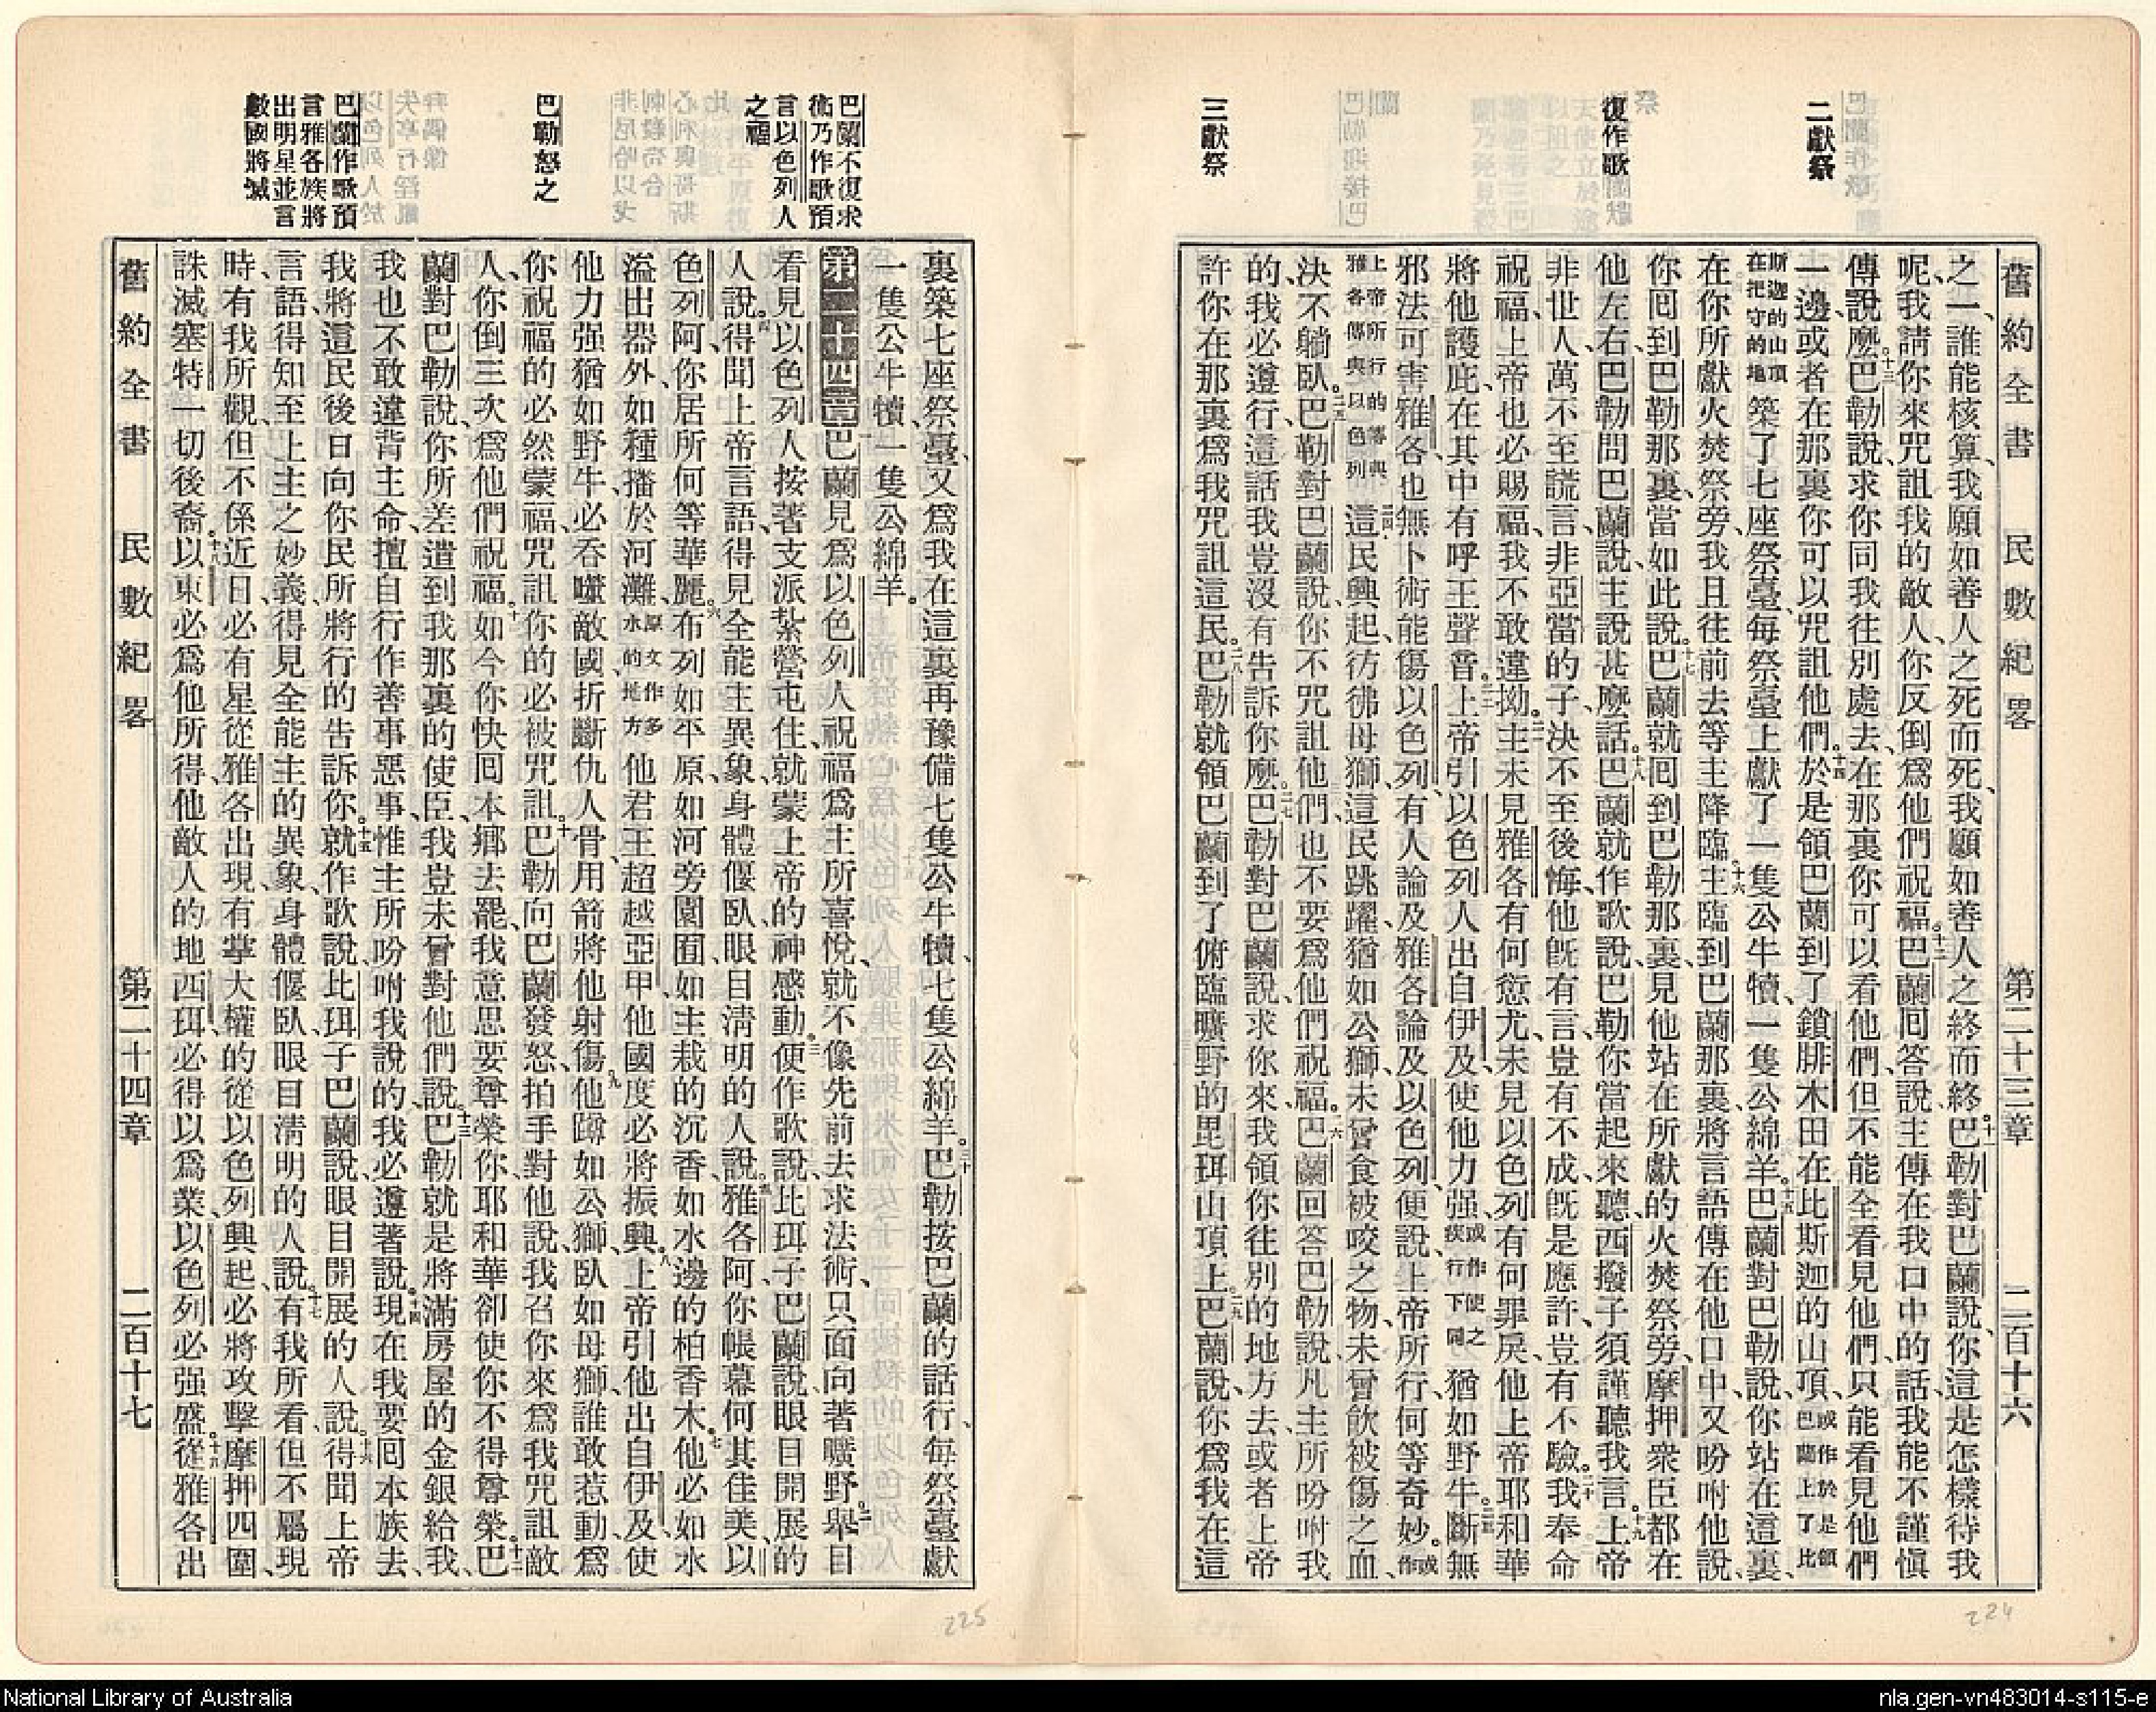 二獻祭
復作歌
三獻祭
舊約全書 民數紀畧 第二十三章 二百十六
之一、誰能核算、我願如善人之死而死、我願如善人之終而終。十一巴勒對巴蘭說、你這是怎樣待我
呢、我請你來咒詛我的敵人、你反倒爲他們祝福。十二巴蘭回答說、主傳在我口中的話、我能不謹愼
傳說麼。十三巴勒說、求你同我往別處去、在那裏你可以看他們、但不能全看見他們、只能看見他們
一邊、或者在那裏你可以咒詛他們。十四於是領巴蘭到了鎖腓木田、在比斯迦的山頂、或作於是領巴蘭上了比
斯迦的山頂在把守的地築了七座祭臺、每祭臺上獻了一隻公牛犢、一隻公綿羊。十五巴蘭對巴勒說、你站在這裏、
在你所獻火焚祭旁、我且往前去等主降臨。十六主臨到巴蘭那裏、將言語傳在他口中、又吩咐他說、
你回到巴勒那裏、當如此說。十七巴蘭就回到巴勒那裏、見他站在所獻的火焚祭旁、摩押衆臣都在
他左右、巴勒問巴蘭說、主說甚麼話。十八巴蘭就作歌說、巴勒你當起來聽、西撥子須謹聽我言。十九上帝
非世人、萬不至謊言、非亞當的子、決不至後悔、他旣有言、豈有不成、旣是應許、豈有不驗。二十我奉命
祝福、上帝也必賜福、我不敢違拗。二一主未見雅各有何愆尤、未見以色列有何罪戾、他上帝耶和華
將他護庇、在其中有呼王聲音。二二上帝引以色列人出自伊及、使他力强、或作使之疾行下同猶如野牛。二三斷無
邪法可害雅各、也無卜術能傷以色列、有人論及雅各、論及以色列、便說、上帝所行、何等奇妙。或作
上帝所行的等與雅各傳與以色列二四這民興起、彷彿母獅、這民跳躍、猶如公獅、未曾食被咬之物、未曾飲被傷之血、
決不躺臥。二五巴勒對巴蘭說、你不咒詛他們、也不要爲他們祝福。二六巴蘭回答巴勒說、凡主所吩咐我
的、我必遵行、這話我豈沒有告訴你麼。二七巴勒對巴蘭說、求你來、我領你往別的地方去、或者上帝
許你在那裏爲我咒詛這民。二八巴勒就領巴蘭到了俯臨曠野的毘珥山頂上。二九巴蘭說、你爲我在這
巴蘭不復求
術乃作歌預
言以色列人
之福
巴勒怒之
巴蘭作歌預
言雅各族將
出明星並言
數國將滅
裏築七座祭臺、又爲我在這裏再豫備七隻公牛犢、七隻公綿羊。三十巴勒按巴蘭的話行、每祭臺獻
一隻公牛犢、一隻公綿羊。
第二十四章巴蘭見爲以色列人祝福爲主所喜悅、就不像先前去求法術、只面向著曠野。二舉目
看見以色列人按著支派紮營屯住、就蒙上帝的神感動。三便作歌說、比珥子巴蘭說、眼目開展的
人說。四得聞上帝言語、得見全能主異象、身體偃臥、眼目淸明的人說。五雅各阿、你帳幕何其佳美、以
色列阿、你居所何等華麗。六布列如平原、如河旁園囿、如主栽的沉香、如水邊的柏香木。七他必如水
溢出器外、如種播於河灘、原文作多水的地方他君王超越亞甲、他國度必將振興。八上帝引他出自伊及、使
他力强猶如野牛、必吞嚥敵國、折斷仇人骨、用箭將他射傷。九他蹲如公獅、臥如母獅、誰敢惹動、爲
你祝福的必然蒙福、咒詛你的必被咒詛。十巴勒向巴蘭發怒、拍手對他說、我召你來爲我咒詛敵
人、你倒三次爲他們祝福。十一如今你快回本鄉去罷、我意思要尊榮你、耶和華卻使你不得尊榮。十二巴
蘭對巴勒說、你所差遣到我那裏的使臣、我豈未曾對他們說。十三巴勒就是將滿房屋的金銀給我、
我也不敢違背主命、擅自行作善事惡事、惟主所吩咐我說的、我必遵著說。十四現在我要回本族去、
我將這民後日向你民所將行的告訴你。十五就作歌說、比珥子巴蘭說、眼目開展的人說。十六得聞上帝
言語、得知至上主之妙義、得見全能主的異象、身體偃臥、眼目淸明的人說。十七有我所看、但不屬現
時、有我所觀、但不係近日、必有星從雅各出現、有掌大權的從以色列興起、必將攻擊摩押四圍、
誅滅塞特一切後裔。十八以東必爲他所得、他敵人的地西珥、必得以爲業、以色列必强盛。十九從雅各出
舊約全書 民數紀畧 第二十四章 二百十七
224
225
National Library of Australia
nla.gen-vn483014-s115-e